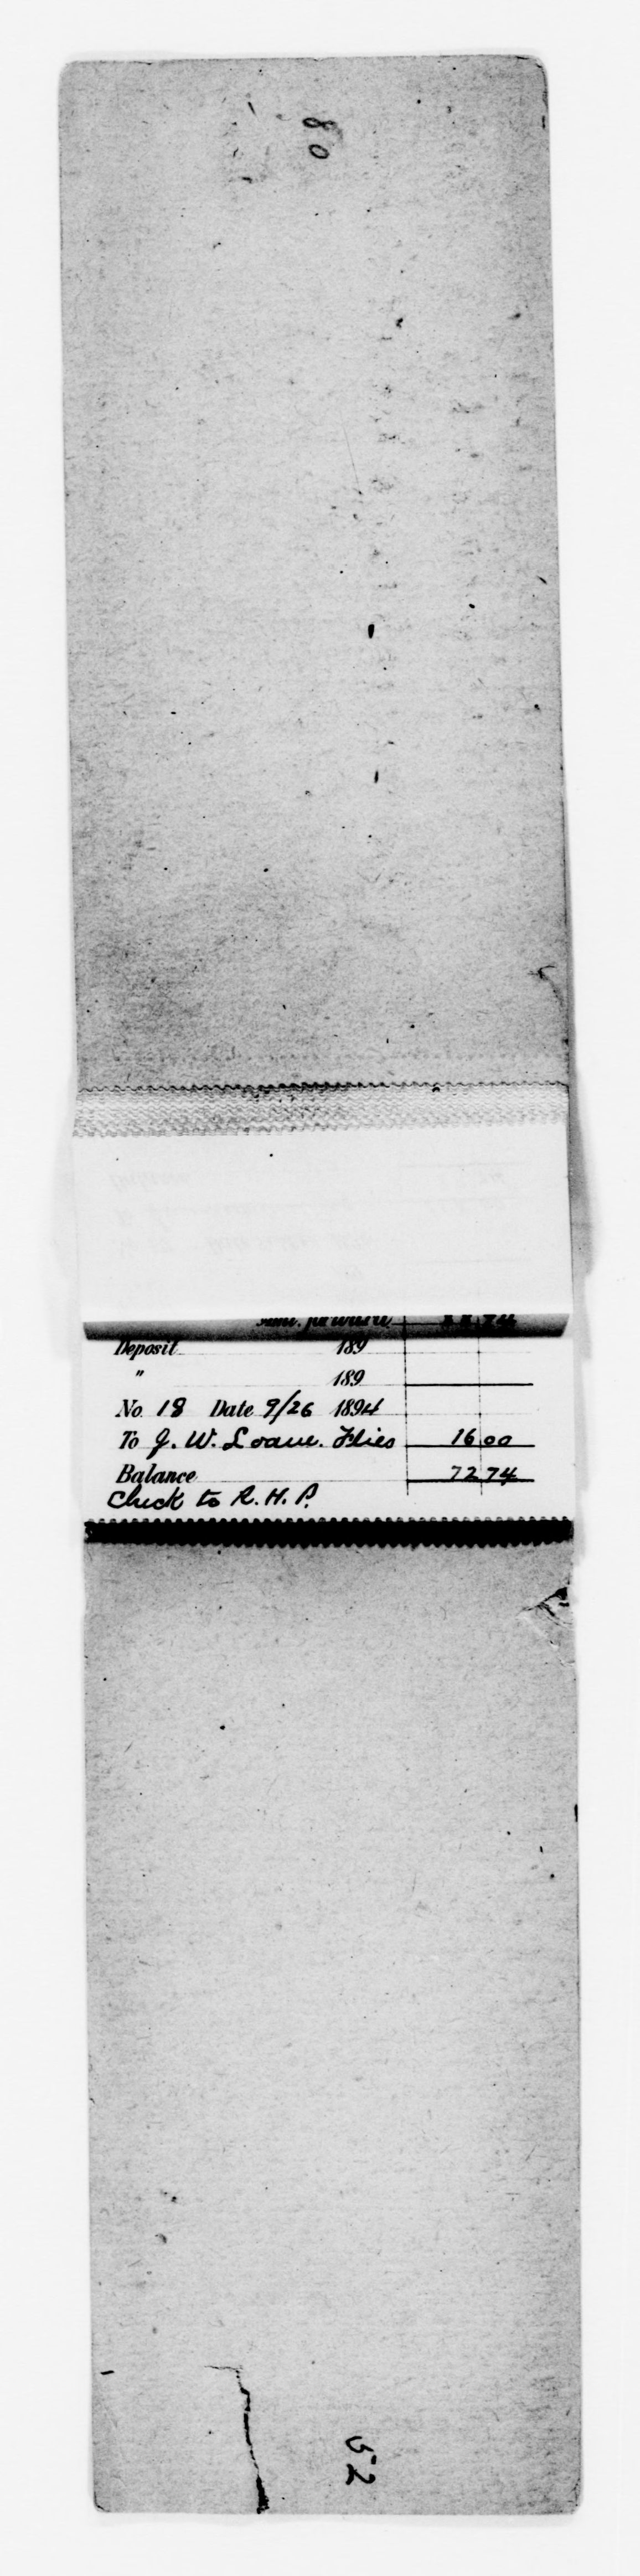 80
Amt. forward 88 74
Deposit 189
" 189
No. 18 Date 9/26 1894
To J. W. Loane. Flies 16 00
Balance 72 74
Check to R. H. P.
52